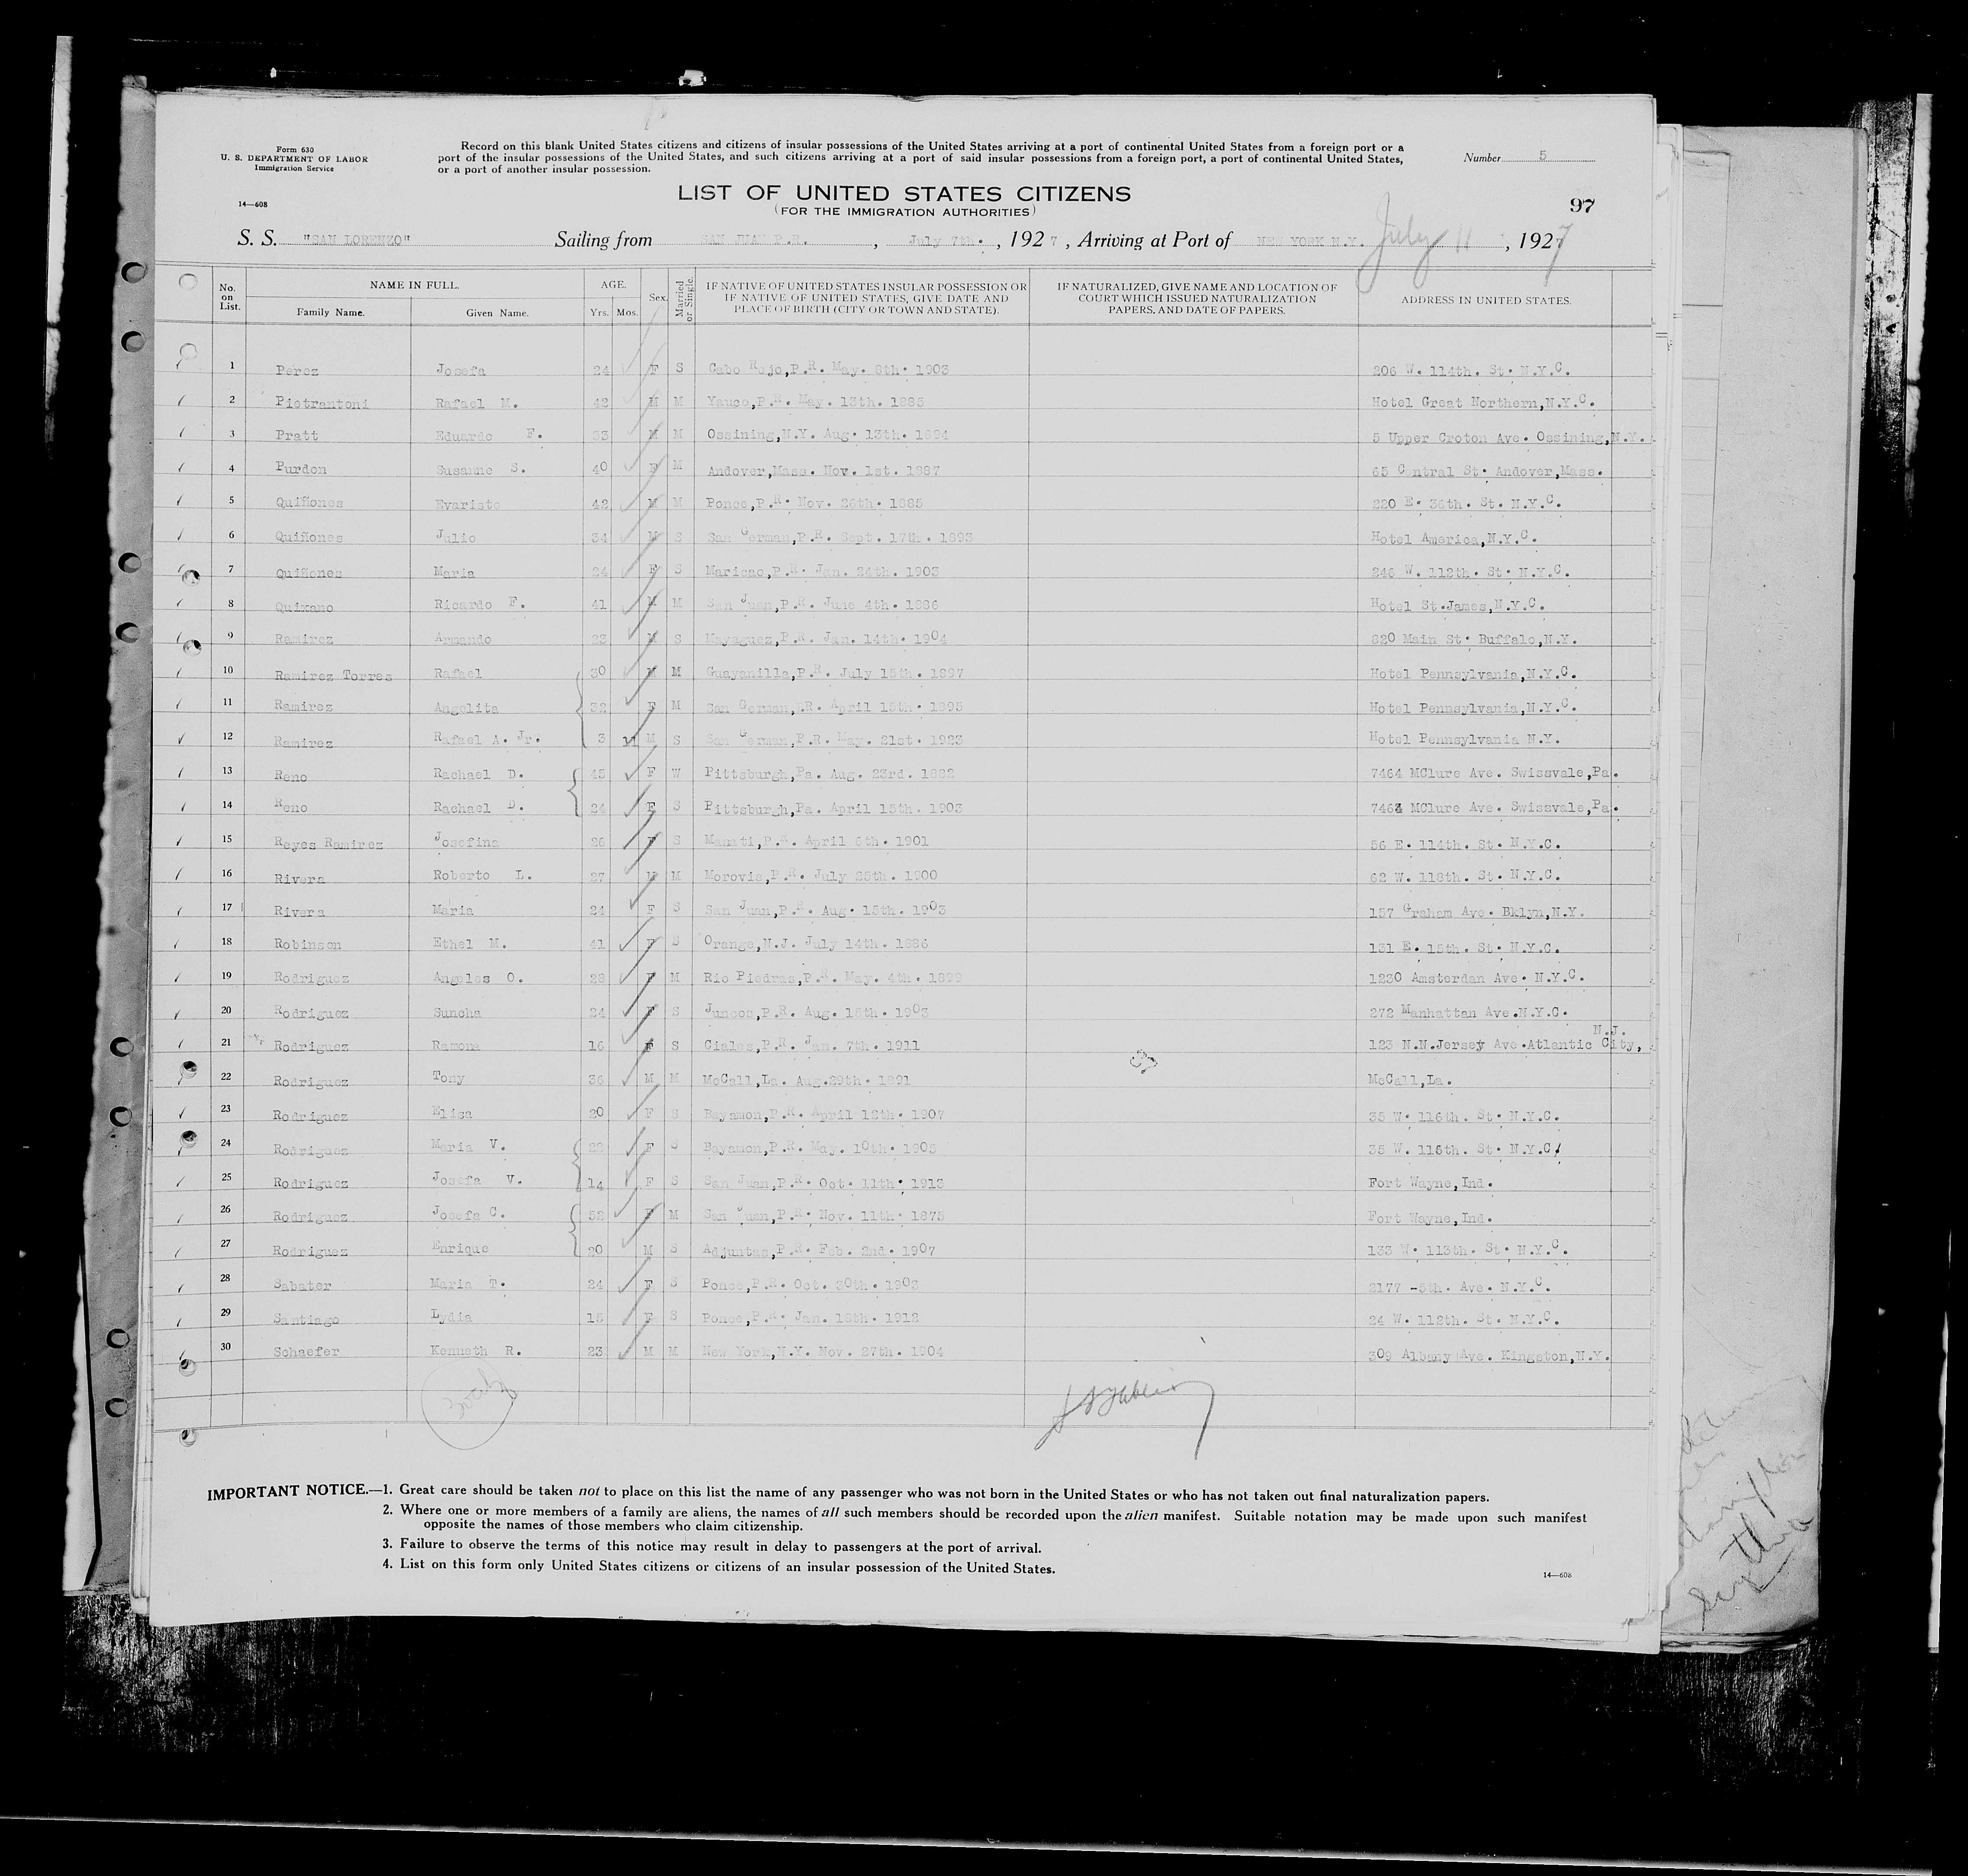 Form 630
U. S. DEPARTMENT OF LABOR
Immigration Service
14—608
Record on this blank United States citizens and citizens of insular possessions of the United States arriving at a port of continental United States from a foreign port or a
port of the insular possessions of the United States, and such citizens arriving at a port of said insular possessions from a foreign port, a port of continental United States,
or a port of another insular possession.
Number 5
LIST OF UNITED STATES CITIZENS
(FOR THE IMMIGRATION AUTHORITIES)
97
S. S. "SAN LORENZO" Sailing from SAN JUAN P.R. , July 7th. , 1927 , Arriving at Port of NEW YORK N.Y. July 11 , 1927
No. on List. NAME IN FULL. Family Name. Given Name. AGE. Yrs. Mos. Sex. Married or Single. IF NATIVE OF UNITED STATES INSULAR POSSESSION OR IF NATIVE OF UNITED STATES, GIVE DATE AND PLACE OF BIRTH (CITY OR TOWN AND STATE). IF NATURALIZED, GIVE NAME AND LOCATION OF COURT WHICH ISSUED NATURALIZATION PAPERS, AND DATE OF PAPERS. ADDRESS IN UNITED STATES.
1 Perez Josefa 24 F S Cabo Rojo,P.R. May. 8th. 1903 206 W. 114th. St. N.Y.C.
2 Pietrantoni Rafael M. 42 M M Yauco,P.R. May. 13th. 1885 Hotel Great Northern,N.Y.C.
3 Pratt Eduardo F. 33 M M Ossining,N.Y. Aug. 13th. 1894 5 Upper Croton Ave. Ossining,N.Y.
4 Purdon Susanne S. 40 F M Andover,Mass. Nov. 1st. 1887 65 Central St. Andover,Mass.
5 Quiñones Evaristo 42 M M Ponce,P.R. Nov. 26th. 1885 220 E. 36th. St. N.Y.C.
6 Quiñones Julio 34 M S San German,P.R. Sept. 17th. 1893 Hotel America,N.Y.C.
7 Quiñones Maria 24 F S Maricao,P.R. Jan. 24th. 1903 246 W. 112th. St. N.Y.C.
8 Quixano Ricardo F. 41 M M San Juan,P.R. June 4th. 1886 Hotel St.James,N.Y.C.
9 Ramirez Armando 23 M S Mayaguez,P.R. Jan. 14th. 1904 820 Main St. Buffalo,N.Y.
10 Ramirez Torres Rafael 30 M M Guayanilla,P.R. July 15th. 1897 Hotel Pennsylvania,N.Y.C.
11 Ramirez Angelita 32 F M San German,PR. April 15th. 1895 Hotel Pennsylvania,N.Y.C.
12 Ramirez Rafael A. Jr. 3 11 M S San German,P.R. May. 21st. 1923 Hotel Pennsylvania N.Y.
13 Reno Rachael D. 45 F W Pittsburgh,Pa. Aug. 23rd. 1882 7464 MClure Ave. Swissvale,Pa.
14 Reno Rachael D. 24 F S Pittsburgh,Pa. April 15th. 1903 7464 MClure Ave. Swissvale,Pa.
15 Reyes Ramirez Josefina 26 F S Manati,P.R. April 6th. 1901 56 E. 114th. St. N.Y.C.
16 Rivera Roberto L. 27 M M Morovis,P.R. July 25th. 1900 62 W. 118th. St. N.Y.C.
17 Rivera Maria 24 F S San Juan,P.R. Aug. 15th. 1903 157 Graham Ave. Bklyn,N.Y.
18 Robinson Ethel M. 41 F S Orange,N.J. July 14th. 1886 131 E. 15th. St. N.Y.C.
19 Rodriguez Angeles O. 28 F M Rio Piedras,P.R. May. 4th. 1899 1230 Amsterdan Ave. N.Y.C.
20 Rodriguez Suncha 24 F S Juncos,P.R. Aug. 15th. 1903 272 Manhattan Ave.N.Y.C.
21 Rodriguez Ramona 16 F S Ciales,P.R. Jan. 7th. 1911 123 N.N.Jersey Ave.Atlantic City, N.J.
22 Rodriguez Tony 36 M M McCall,La. Aug.29th. 1891 McCall,La.
23 Rodriguez Elisa 20 F S Bayamon,P.R. April 12th. 1907 35 W. 116th. St. N.Y.C.
24 Rodriguez Maria V. 22 F S Bayamon,P.R. May. 10th. 1905 35 W. 116th. St. N.Y.C.
25 Rodriguez Josefa V. 14 F S San Juan,P.R. Oct. 11th. 1913 Fort Wayne,Ind.
26 Rodriguez Josefa C. 52 F M San Juan,P.R. Nov. 11th. 1875 Fort Wayne,Ind.
27 Rodriguez Enrique 20 M S Adjuntas,P.R. Feb. 2nd. 1907 133 W. 113th. St. N.Y.C.
28 Sabater Maria T. 24 F S Ponce,P.R. Oct. 30th. 1903 2177 -5th. Ave. N.Y.C.
29 Santiago Lydia 15 F S Ponce,P.R. Jan. 18th. 1912 24 W. 112th. St. N.Y.C.
30 Schaefer Kenneth R. 23 M M New York,N.Y. Nov. 27th. 1904 309 Albany Ave. Kingston,N.Y.
IMPORTANT NOTICE.—1. Great care should be taken not to place on this list the name of any passenger who was not born in the United States or who has not taken out final naturalization papers.
2. Where one or more members of a family are aliens, the names of all such members should be recorded upon the alien manifest. Suitable notation may be made upon such manifest
opposite the names of those members who claim citizenship.
3. Failure to observe the terms of this notice may result in delay to passengers at the port of arrival.
4. List on this form only United States citizens or citizens of an insular possession of the United States.
14—608